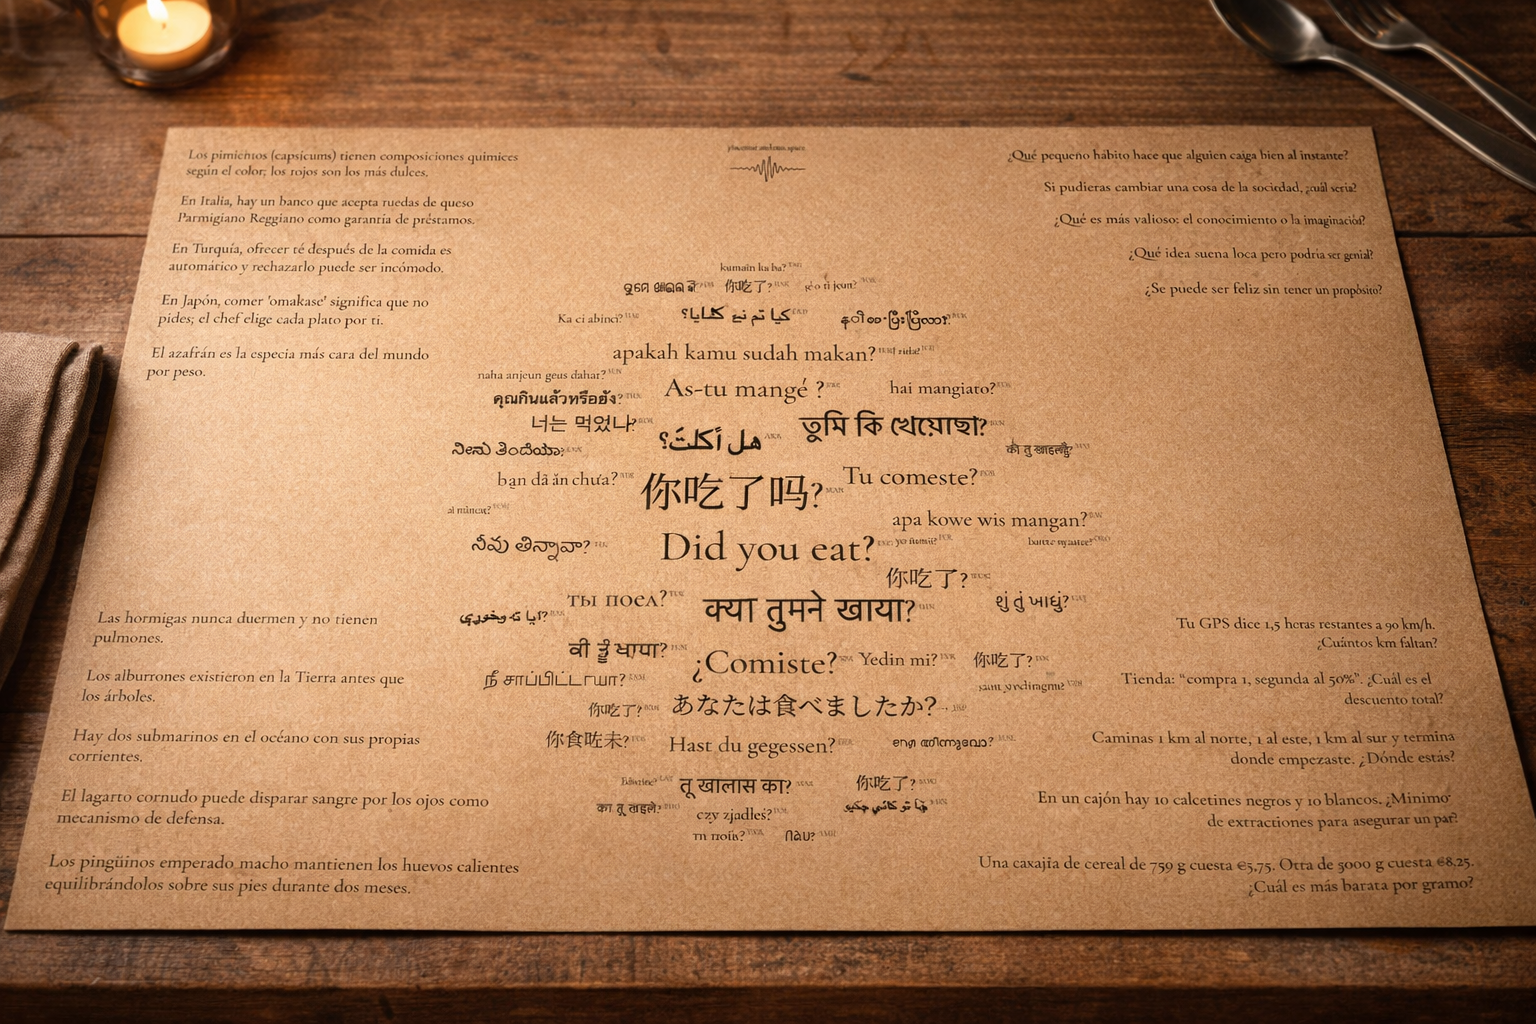 Los pimientos (capsicums) tienen composiciones químicas
según el color; los rojos son los más dulces.
En Italia, hay un banco que acepta ruedas de queso
Parmigiano Reggiano como garantía de préstamos.
En Turquía, ofrecer té después de la comida es
automático y rechazarlo puede ser incómodo.
En Japón, comer 'omakase' significa que no
pides; el chef elige cada plato por ti.
El azafrán es la especia más cara del mundo
por peso.
¿Qué pequeño hábito hace que alguien caiga bien al instante?
Si pudieras cambiar una cosa de la sociedad, ¿cuál sería?
¿Qué es más valioso: el conocimiento o la imaginación?
¿Qué idea suena loca pero podría ser genial?
¿Se puede ser feliz sin tener un propósito?
kumain ka ba?
你吃了?
Ka ci abinci?
apakah kamu sudah makan?
naha anjeun geus dahar?
As-tu mangé ?
hai mangiato?
คุณกินแล้วหรือยัง?
너는 먹었나?
هل أكلتَ؟
তুমি কি খেয়েছো?
bạn đã ăn chưa?
你吃了吗?
Tu comeste?
apa kowe wis mangan?
Did you eat?
你吃了?
ты поел?
क्या तुमने खाया?
શું તું ખાધું?
¿Comiste?
Yedin mi?
你吃了?
நீ சாப்பிட்டாயா?
你吃了?
あなたは食べましたか?
你食咗未?
Hast du gegessen?
तू खालास का?
你吃了?
czy zjadłeś?
Las hormigas nunca duermen y no tienen
pulmones.
Los alburrones existieron en la Tierra antes que
los árboles.
Hay dos submarinos en el océano con sus propias
corrientes.
El lagarto cornudo puede disparar sangre por los ojos como
mecanismo de defensa.
Los pingüinos emperado macho mantienen los huevos calientes
equilibrándolos sobre sus pies durante dos meses.
Tu GPS dice 1,5 horas restantes a 90 km/h.
¿Cuántos km faltan?
Tienda: “compra 1, segunda al 50%”. ¿Cuál es el
descuento total?
Caminas 1 km al norte, 1 al este, 1 km al sur y termina
donde empezaste. ¿Dónde estás?
En un cajón hay 10 calcetines negros y 10 blancos. ¿Mínimo
de extracciones para asegurar un par?
Una caxajía de cereal de 759 g cuesta €5,75. Otra de 3000 g cuesta €8.25.
¿Cuál es más barata por gramo?